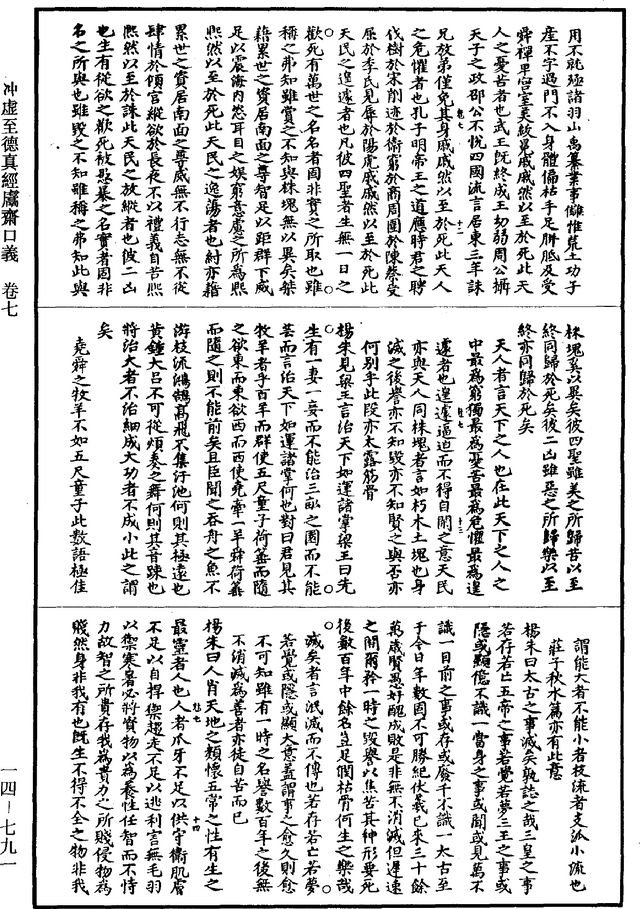 用不就殛諸羽山禹纂業事讎惟荒土功子
産不字過門不入身體偏枯手足胼胝及受
舜禪卑宫室美紱冕戚戚然以至於死此天
人之憂苦者也武王既終成王幼弱周公攝
天子之政邵公不悦四國流言居東三年誅
兄放弟僅免其身戚戚然以至於死此天人
之危懼者也孔子明帝王之道應時君之聘
伐樹於宋削迹於衛窮於商周圍於陳蔡受
屈於季氏見辱於陽虎戚戚然以至於死此
天民之遑遽者也凡彼四聖者生無一日之
歡死有萬世之名名者固非實之所取也雖
稱之弗知雖賞之不知與株塊無以異矣桀
藉累世之資居南面之尊智足以距群下威
足以震海内恣耳目之娱窮意慮之所為熙
熙然以至於死此天民之逸蕩者也紂亦藉
累世之資居南面之尊威無不行志無不從
肆情於傾宫縱欲於長夜不以禮義自苦熙
熙然以至於誅此天民之放縱者也彼二凶
也生有從欲之歡死被愚暴之名實者固非
名之所與也雖毁之不知雖稱之弗知此與
株塊奚以異矣彼四聖雖美之所歸苦以至
終同歸於死矣彼二凶雖惡之所歸樂以至
終亦同歸於死矣
天人者言天下之人也在此天下之人之
中最為窮獨最為憂苦最為危懼最為遑
遽者也遑遽逼迫而不得自閑之意天民
亦與天人同株塊者言如朽木土塊也身
滅之後譽亦不知毁亦不知賢之與否亦
何别乎此段亦太露筋骨
楊朱見梁王言治天下如運諸掌梁王曰先
生有一妻一妾而不能治三畝之園而不能
芸而言治天下如運諸掌何也對曰君見其
牧羊者乎百羊而群使五尺童子荷箠而隨
之欲東而東欲西而西使堯牽一羊舜荷箠
而隨之則不能前矣且臣聞之吞舟之魚不
游枝流鴻鵠高飛不集汙池何則其極遠也
黄鍾大吕不可從煩奏之舞何則其音踈也
將治大者不治細成大功者不成小此之謂
矣
堯舜之牧羊不如五尺童子此數語極佳
謂能大者不能小者枝流者支派小流也
莊子秋水篇亦有此意
楊朱曰太古之事滅矣孰誌之哉三皇之事
若存若亡五帝之事若覺若夢三王之事或
隱或顯億不識一當身之事或聞或見萬不
識一目前之事或存或廢千不識一太古至
于今日年數固不可勝紀伏羲已來三十餘
萬歲賢愚好醜成敗是非無不消滅但遲速
之間爾矜一時之毁譽以焦苦其神形要死
後數百年中餘名豈足潤枯骨何生之樂哉
滅矣者言泯滅而不傳也若存若亡若夢
若覺或隱或顯大意蓋謂事之愈久則愈
不可知雖有一時之名譽數百年之後無
不消滅為善者亦徒自苦而已
楊朱曰人肖天地之類懷五常之性有生之
最靈者人也人者爪牙不足以供守衛肌膚
不足以自捍禦趨走不足以逃利害無毛羽
以禦寒暑必將資物以為養性任智而不恃
力故智之所貴存我為貴力之所賤侵物為
賤然身非我有也既生不得不全之物非我
冲虚至德真經鬳齋口義　卷七
一四—七九一